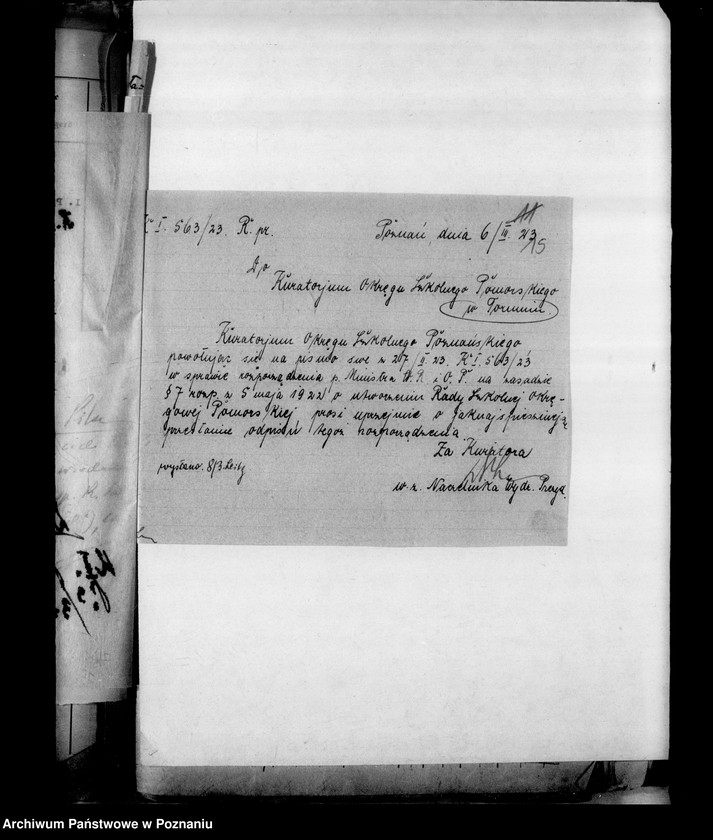 K I. 563/23. R. pr.
Poznań, dnia 6/III. 23
15
Do
Kuratorjum Okręgu Szkolnego Pomorskiego
w Toruniu.
Kuratorjum Okręgu Szkolnego Poznańskiego
powołując się na pismo swe z 27/II 23. K I. 563/23
w sprawie rozporządzenia p. Ministra W. R. i O. P. na zasadzie
§ 7 rozp. z 5 maja 1922 o utworzeniu Rady Szkolnej Okrę-
gowej Pomorskiej prosi uprzejmie o jaknajspieszniejsze
przesłanie odpisu tegoż rozporządzenia.
Za Kuratora
wysłano 8/3.
w. z. Naczelnika Wydz. Prezyd.
Archiwum Państwowe w Poznaniu